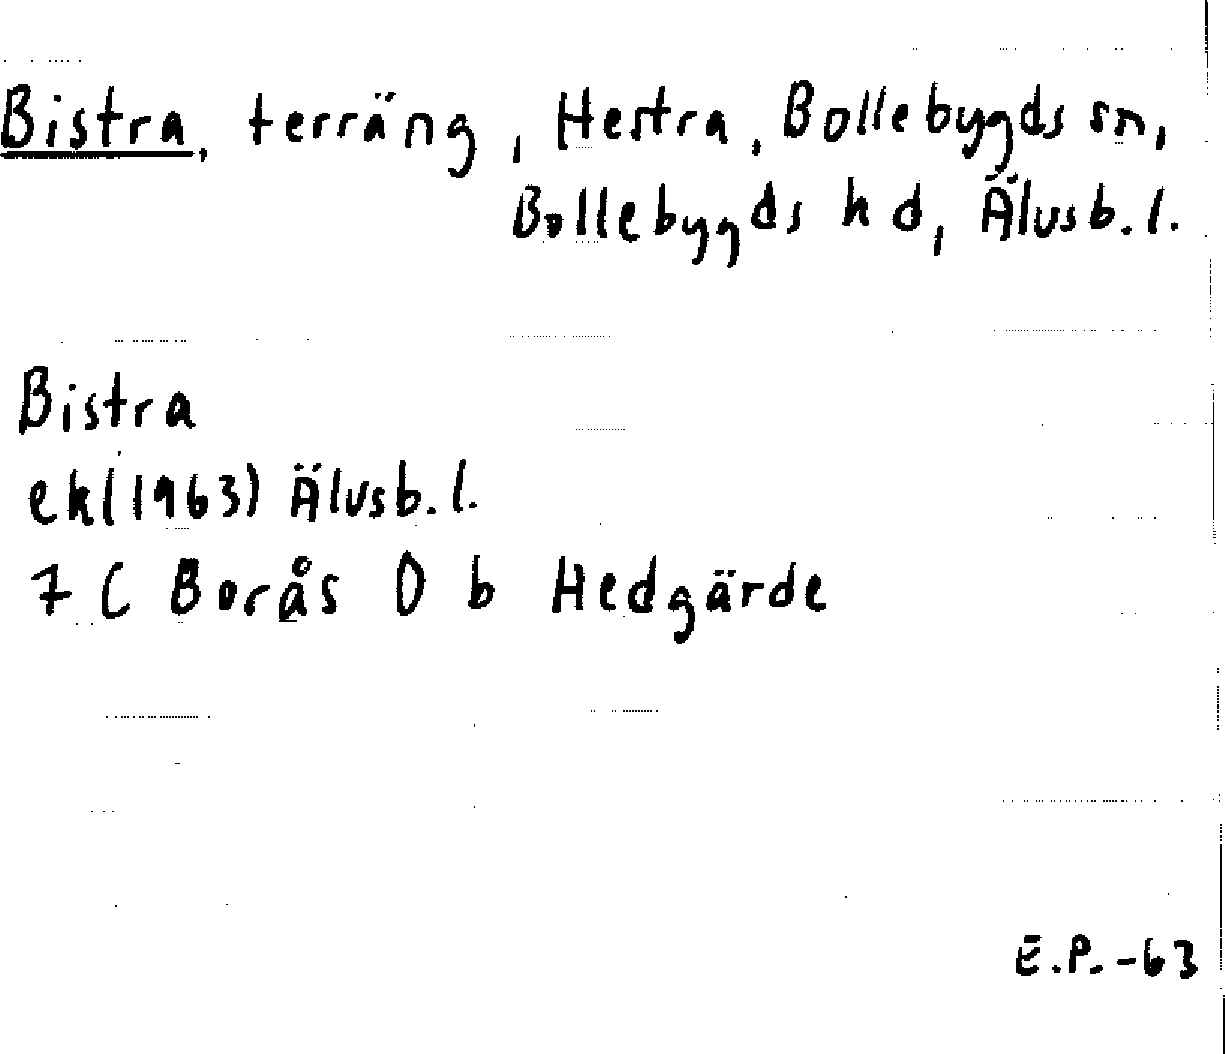 Bistra, terräng, Hestra, Bollebygds sn,
Bollebygds hd, Älvsb.l.
Bistra
ek(1963) Älvsb.l.
7 C Borås 0 b Hedgärde
E.P.-63